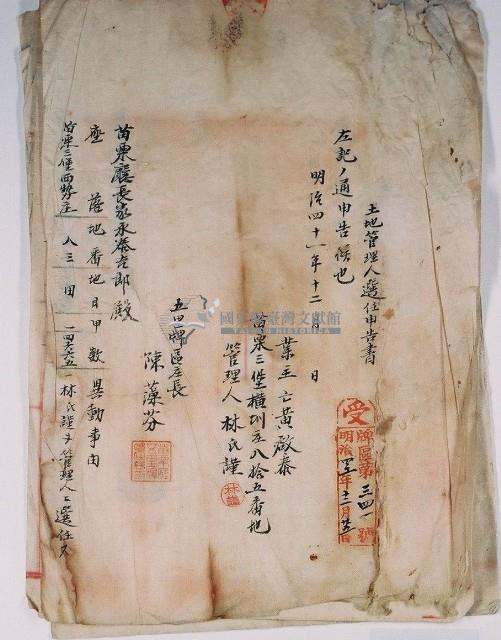 土地管理人選任申告書
左記ノ通申告候也
明治四十一年十二月 日
業主亡黃啟泰
苗栗三堡橫圳庄八拾五番地
管理人 林氏謹
五里牌區庄長
陳藻芬
苗栗廳長家永泰吉郎殿
座落 地番 地目 甲數 異動事由
苗栗三堡四塊庄 八三 田 一四六六五 林氏謹ヲ管理人ニ選任ス
受
牌區第三四一號
明治 年十二月 日
國史館臺灣文獻館
TAIWAN HISTORICA